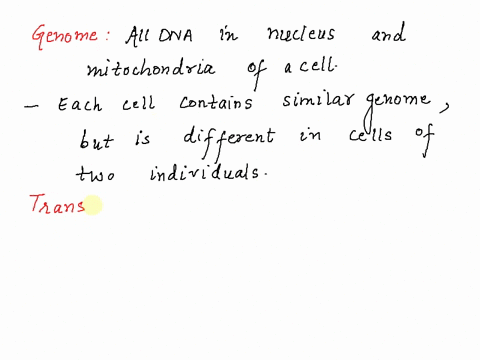 Genome: All DNA in nucleus and
mitochondria of a cell.
- Each cell contains similar genome,
but is different in cells of
two individuals.
Trans